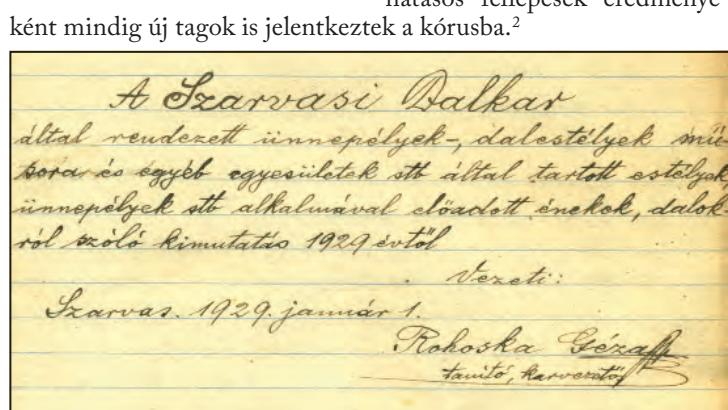 hatásos fellépések eredménye-
ként mindig új tagok is jelentkeztek a kórusba.²
A Szarvasi Dalkar
által rendezett ünnepélyek-, dalestélyek mű-
sora és egyéb egyesületek stb által tartott estélyek
ünnepélyek stb alkalmával előadott énekek, dalok-
ról szóló kimutatás 1929 évtől
Vezeti:
Szarvas. 1929. január 1.
Rohoska Géza
tanító, karvezető